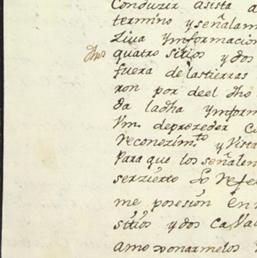 Conduzir asista a
termino y señalam
Ziva Ynformacion
dho quatro sitios y dos
fuera de las tierras
ron por de el dho
da la dha ynform
Vm. de prozeder Co
Reconozim.to y Vista
Para que los señalen
ser zierto lo refe
me posesion en
sitios y dos Cava
amoxonarmelos